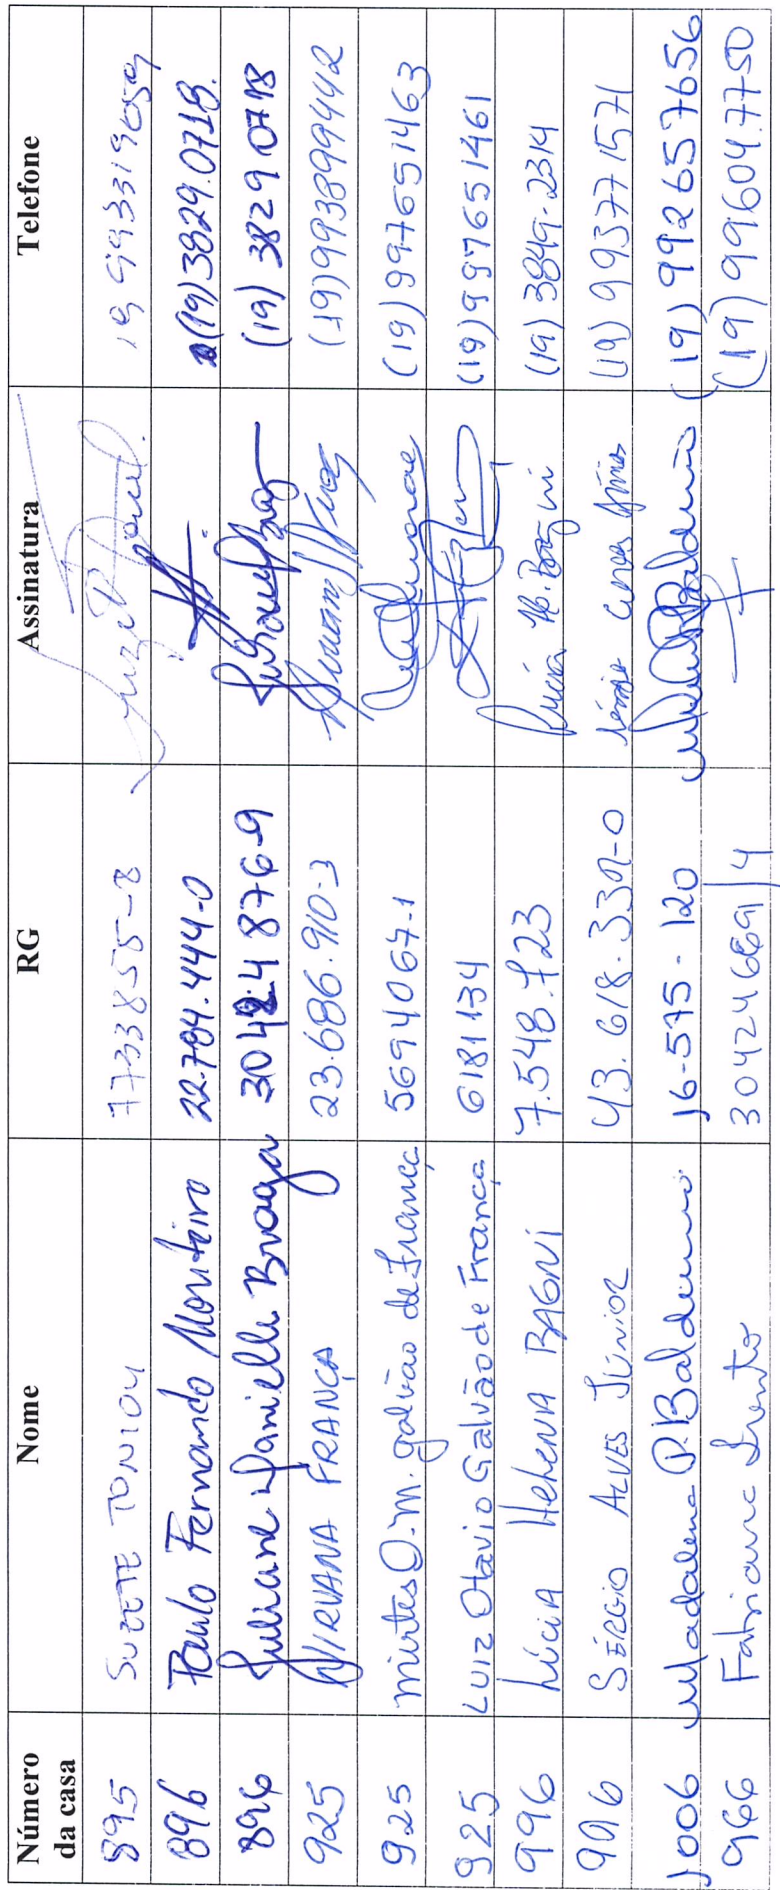 Número da casa | Nome | RG | Assinatura | Telefone
895 | SUZETE TONIOLI | 7733855-8 | | 19 993319059
896 | Paulo Fernando Monteiro | 22.794.444-0 | | (19)3829.0718.
896 | Juliane Danielle Braga | 876-9 | | (19) 3829 0718
925 | NIRVANA FRANÇA | 23.686.910-3 | | (19)993899442
925 | Mirtes O. M. Galvão de França | 5694067-1 | | (19) 997651463
925 | LUIZ Otavio Galvão de França | 6181134 | | (19) 997651461
996 | Lúcia Helena BAGNI | 7.548.723 | Lucia H. Bagni | (19) 3849-2314
996 | SÉRGIO ALVES JÚNIOR | 43.618.339-0 | Sérgio Alves Júnior | (19) 993771571
1006 | Madalena P. Balduino | 16-575-120 | | (19) 992657656
966 | Fabiana Trento | 304241669/4 | | (19) 99604.7750